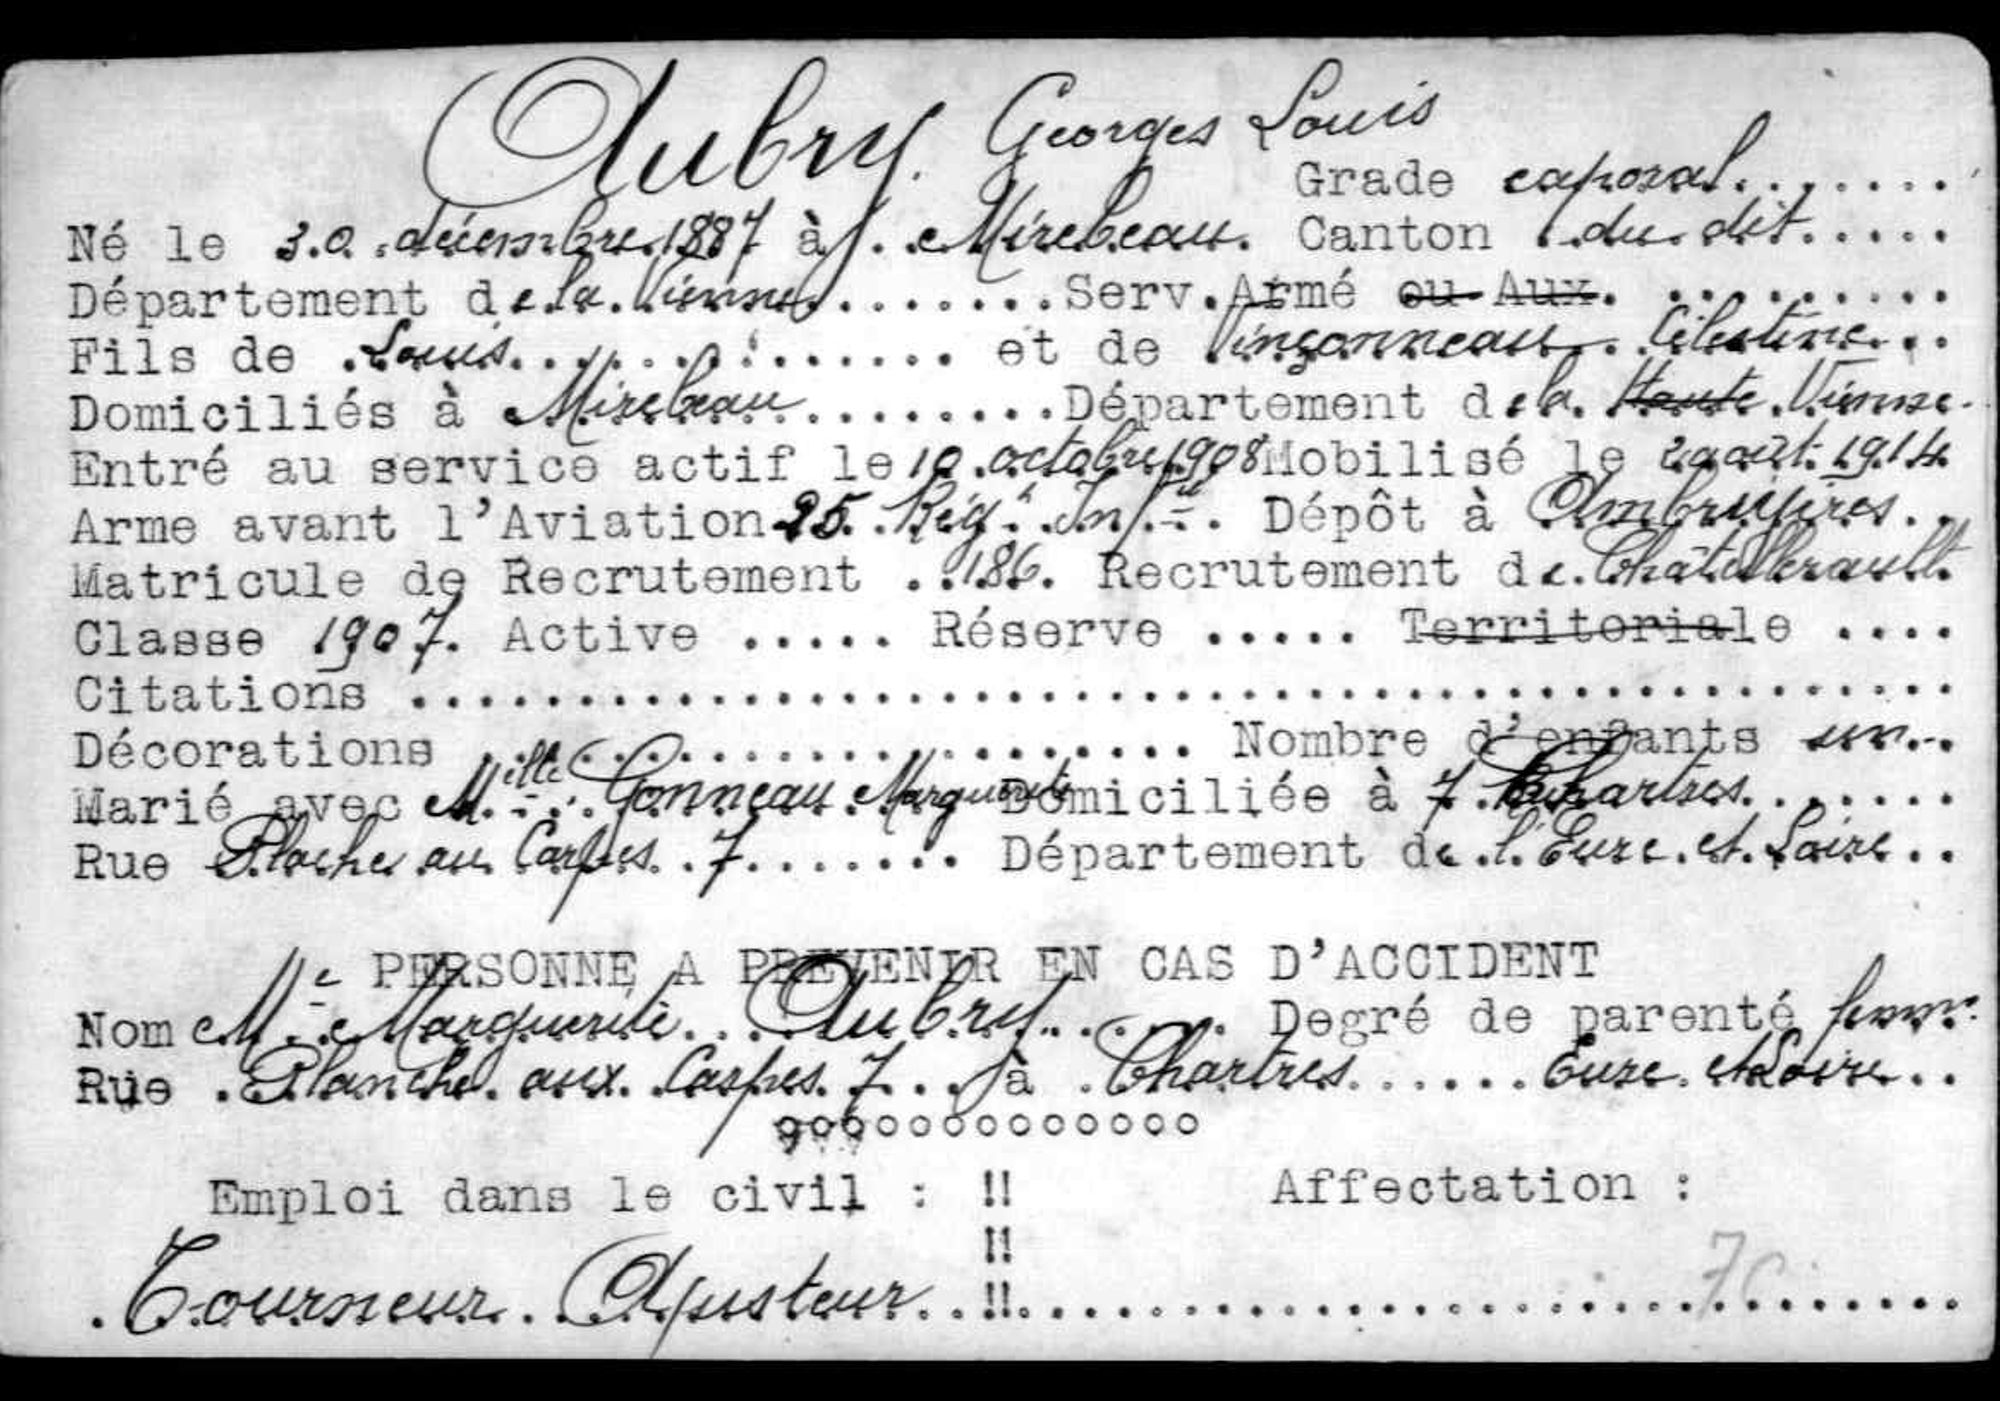 Aubry. Georges Louis
Grade caporal
Né le 30 décembre 1887 à Mirebeau. Canton du dit
Département de la Vienne Serv. Armé ou Aux.
Fils de Louis et de Vinçonneau Célestine
Domiciliés à Mirebeau Département de la Haute Vienne
Entré au service actif le 10 octobre 1908 Mobilisé le 2 aout 1914
Arme avant l'Aviation 25 Régt Inf Dépôt à
Matricule de Recrutement 186. Recrutement de Châtellerault
Classe 1907. Active ..... Réserve ..... Territoriale ....
Citations
Décorations Nombre d'enfants un
Marié avec Melle Gonneau Marguerite Domiciliée à 7 Chartres
Rue Plache au Carpes 7 Département de l'Eure et Loire
PERSONNE A PREVENIR EN CAS D'ACCIDENT
Nom Me Marguerite Aubry Degré de parenté femme
Rue Planche aux Carpes 7 à Chartres Eure et Loire
ooooooooooooo
Emploi dans le civil : !! Affectation :
!!
Tourneur Ajusteur !!